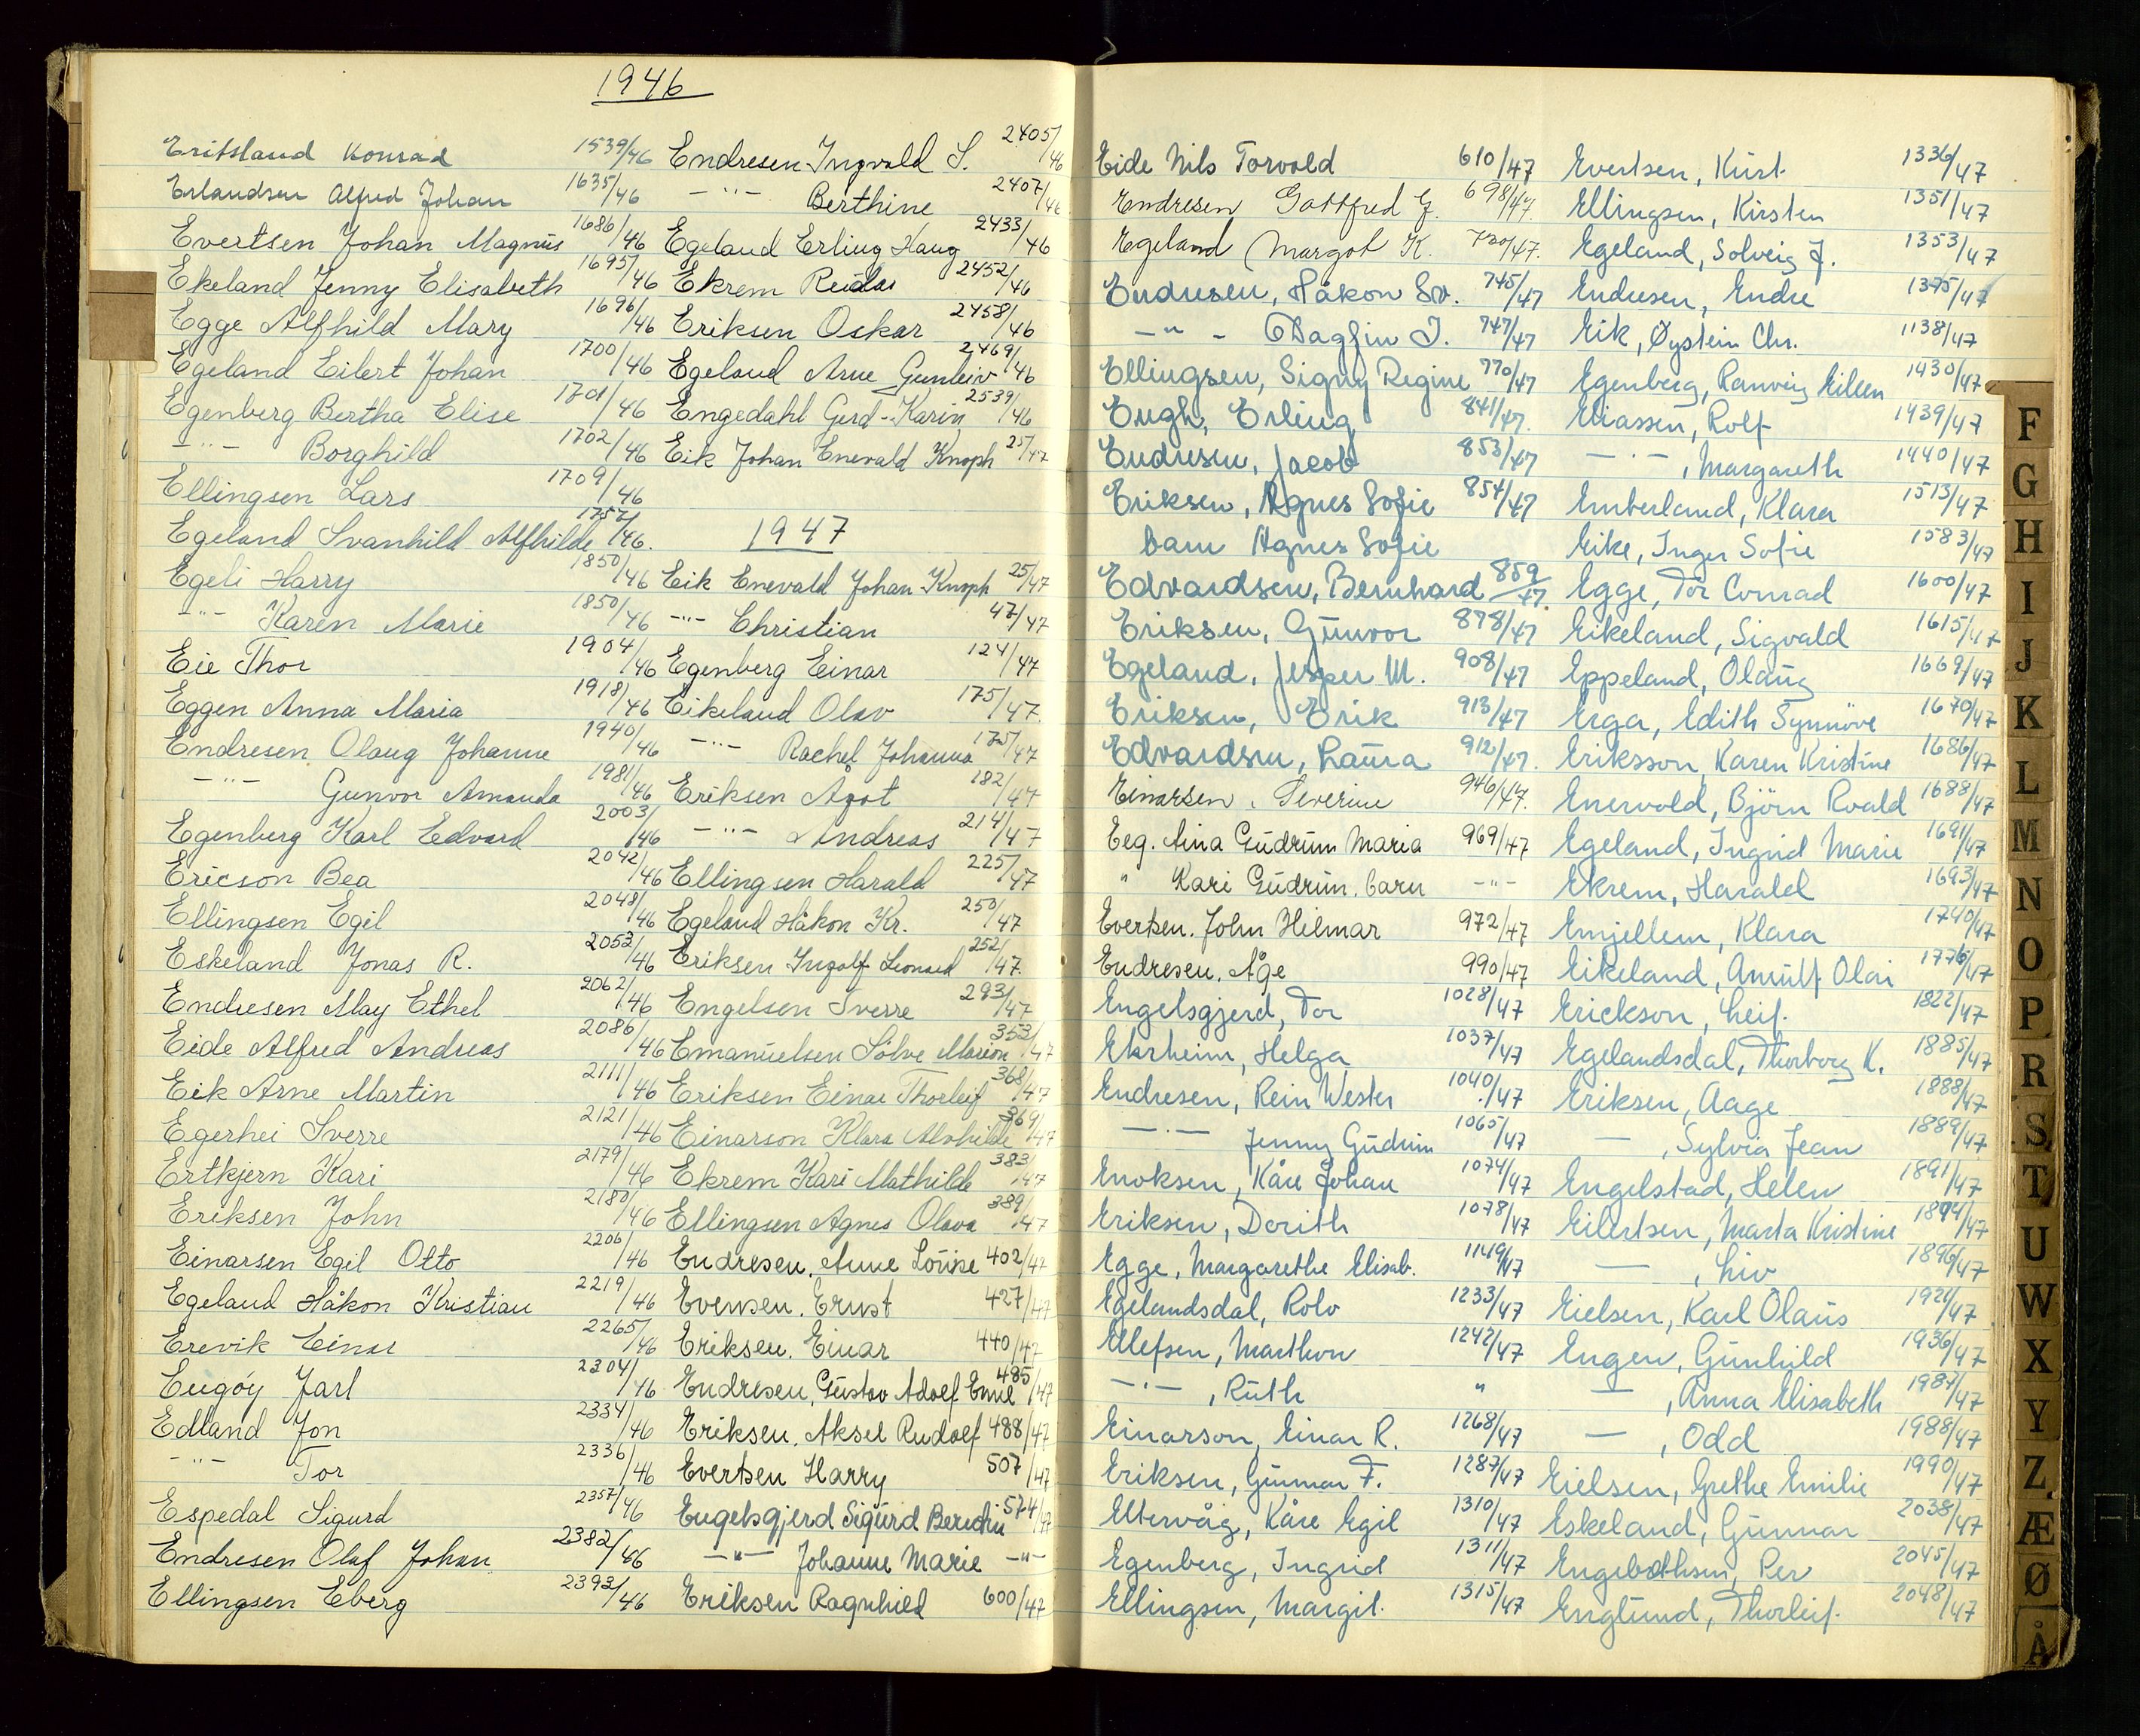 1946
Eritsland Konrad 1539/46
Erlandsen Alfred Johan 1635/46
Evertsen Johan Magnus 1686/46
Ekeland Jenny Elisabeth 1695/46
Egge Alfhild Mary 1696/46
Egeland Eilert Johan 1700/46
Egenberg Bertha Elise 1701/46
-"- Borghild 1702/46
Ellingsen Lars 1709/46
Egeland Svanhild Alfhilde 1757/46.
Egeli Harry 1850/46
-"- Karen Marie 1850/46
Eie Thor 1904/46
Eggen Anna Maria 1918/46
Endresen Olaug Johanne 1940/46
-"- Gunvor Amanda 1981/46
Egenberg Karl Edvard 2003/46
Ericson Bea 2042/46
Ellingsen Egil 2048/46
Eskeland Jonas R. 2052/46
Endresen May Ethel 2062/46
Eide Alfred Andreas 2086/46
Eik Arne Martin 2111/46
Egerhei Sverre 2121/46
Ertkjern Kari 2179/46
Eriksen John 2180/46
Einarsen Egil Otto 2206/46
Egeland Håkon Kristian 2219/46
Erevik Einar 2265/46
Engöy Jarl 2304/46
Edland Jon 2334/46
-"- Tor 2336/46
Espedal Sigurd 2357/46
Endresen Olaf Johan 2382/46
Ellingsen Eberg 2393/46
Endresen Ingvald S. 2405/46
-"- Berthine 2407/46
Egeland Erling Haug 2433/46
Ekrem Reidar 2452/46
Eriksen Oskar 2458/46
Egeland Arne Gunleiv 2469/46
Engedahl Gerd-Karin 2539/46
Eik Johan Enevald Knoph 25/47
1947
Eik Enevald Johan Knoph 25/47
-"- Christian 47/47
Egenberg Einar 124/47
Eikeland Olav 175/47
-"- Rachel Johanna 175/47
Eriksen Agot 182/47
-"- Andreas 214/47
Ellingsen Harald 225/47
Egeland Håkon Kr. 250/47
Eriksen Ingolf Leonard 252/47.
Engelsen Sverre 293/47
Emanuelsen Sölve Marion 353/47
Eriksen Einar Thorleif 368/47
Einarson Klara Alvhilde 369/47
Ekrem Kari Mathilde 383/47
Ellingsen Agnes Olava 389/47
Endresen, Anne Louise 402/47
Evensen, Ernst 427/47
Eriksen, Einar 440/47
Endresen, Gustav Adolf Emil 485/47
Eriksen, Aksel Rudolf 488/47
Evertsen Harry 507/47
Engelsgjerd Sigurd 574/47
-"- Johanne Marie -"-
Eriksen Ragnhild 600/47
Eide Nils Torvald 610/47
Endresen Gottfred G. 698/47.
Egeland Margot K. 720/47.
Endresen, Håkon Sv. 745/47
-"- Dagfin I. 747/47
Ellingsen, Signy Regine 770/47
Engh, Erling 841/47.
Endresen, Jacob 853/47
Eriksen, Agnes Sofie 854/47
barn Agnes Sofie
Edvardsen, Bernhard 859/47.
Eriksen, Gunvor 878/47
Egeland, Jesper M. 908/47
Eriksen, Erik 913/47
Edvardsen, Laura 912/47.
Einarsen, Severine 946/47.
Eeg. Aina Gudrun Maria 969/47
" Kari Gudrun, barn -"-
Evertsen. John Hilmar 972/47
Endresen. Åge 990/47
Engelsgjerd, Tor 1028/47
Ekrheim, Helga 1037/47
Endresen, Rein Wester 1040/47
-"- Jenny Gudrun 1065/47
Enoksen, Kåre Johan 1074/47
Eriksen, Dorith 1078/47
Egge, Margarethe Elisab. 1149/47
Egelandsdal, Rolv 1233/47
Ellefsen, Marthon 1242/47
-"-, Ruth "
Einarson, Einar R. 1268/47
Eriksen, Gunnar F. 1287/47
Eltervåg, Kåre Egil 1310/47
Egenberg, Ingrid 1311/47
Ellingsen, Margit. 1315/47
Evertsen, Kurt. 1336/47
Ellingsen, Kirsten 1351/47
Egeland, Solveig J. 1353/47
Endresen, Endre 1375/47
Eik, Øystein Chr. 1138/47
Egenberg, Ranveig Eileen 1430/47
Eliassen, Rolf 1439/47
-"-, Margareth 1440/47
Emberland, Klara 1513/47
Eike, Inger Sofie 1583/47
Egge, Tor Conrad 1600/47
Eikeland, Sigvald 1615/47
Eppeland, Olaug 1669/47
Erga, Edith Synnöve 1670/47
Eriksson, Karen Kristine 1686/47
Enervold, Björn Roald 1688/47
Egeland, Ingrid Marie 1691/47
Ekrem, Harald 1693/47
Emjellem, Klara 1740/47
Eikeland, Arnulf Olai 1776/47
Erickson, Leif. 1822/47
Egelandsdal, Thorborg K. 1885/47
Eriksen, Aage 1888/47
—, Sylvia Jean 1889/47
Engelstad, Helen 1891/47
Eilertsen, Marta Kristine 1894/47
—, Liv 1896/47
Eielsen, Karl Olaus 1924/47
Engen, Gunhild 1936/47
—, Anna Elisabeth 1987/47
—, Odd 1988/47
Eielsen, Grethe Emilie 1990/47
Eskeland, Gunnar 2038/47
Engebothsen, Per 2045/47
Englund, Thorleif. 2048/47
F
G
H
I
J
K
L
M
N
O
P
R
S
T
U
W
X
Y
Z
Æ
Ø
Å